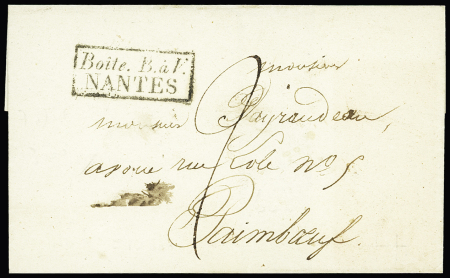 Boîte. B. à V.
NANTES
monsieur
monsieur Peyraudeau,
avoué rue Kole n° 5
Paimbœuf.